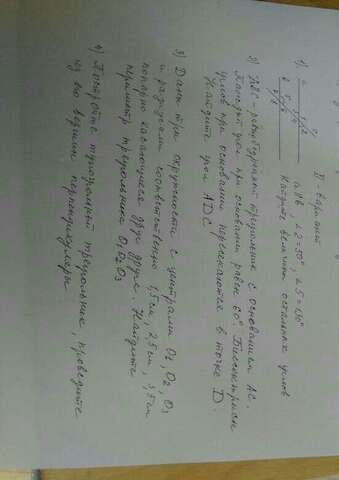 II - вариант
1) a || b ∠2=50°, ∠5=130°
Найдите величины остальных углов
2) - равнобедренный треугольник с основанием AC.
угол при основании равен 60°. Биссектрисы
углов при основании пересекаются в точке D.
Найдите угол ADC
3) Даны три окружности с центрами O₁, O₂, O₃
и радиусами соответственно 1,5 см, 2,5 см, 3,5 см
попарно касающиеся друг друга. Найдите
периметр треугольника O₁O₂O₃
4) Постройте тупоугольный треугольник, проведите
из его вершин перпендикуляры